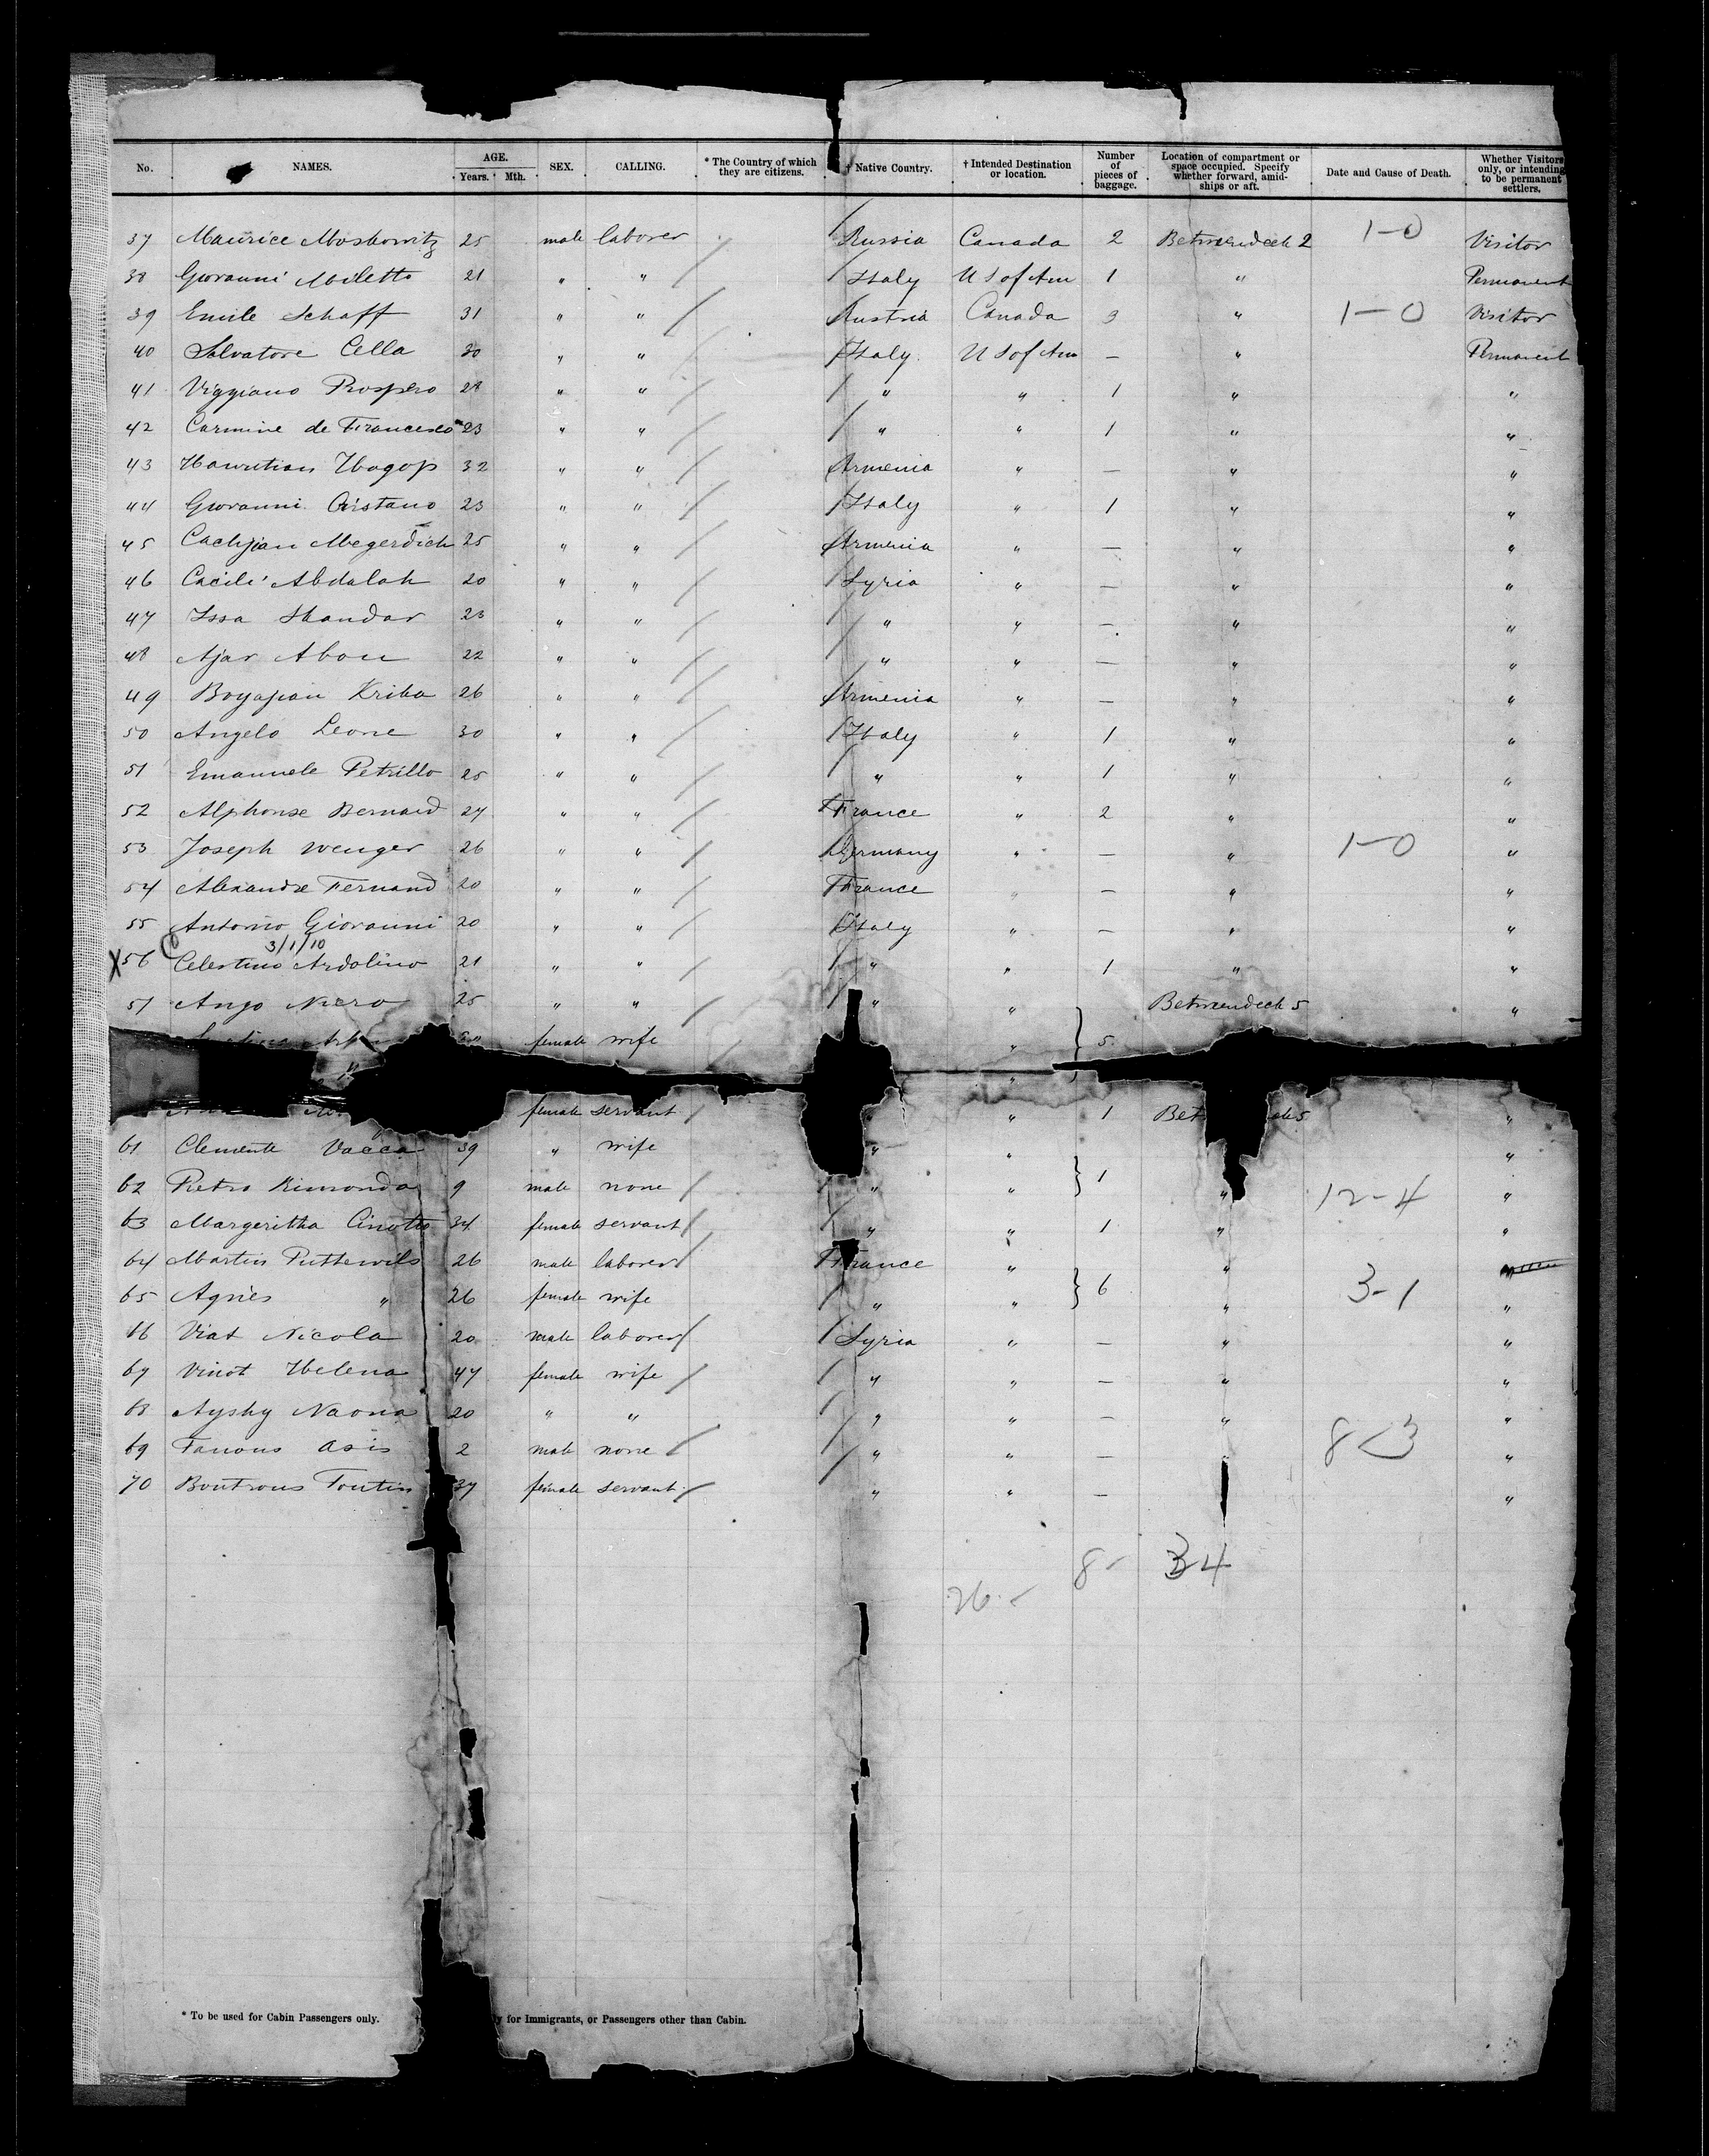 No. NAMES. AGE. Years. Mth. SEX. CALLING. * The Country of which they are citizens. † Native Country. † Intended Destination or location. Number of pieces of baggage. Location of compartment or space occupied. Specify whether forward, amidships or aft. Date and Cause of Death. Whether Visitors only, or intending to be permanent settlers.
37 Maurice Moskowitz 25 male laborer / Russia Canada 2 Betweendeck 2 1-0 Visitor
38 Giovanni Miletto 21 " " / Italy U S of Am 1 " Permanent
39 Emile Schaff 31 " " / Austria Canada 3 " 1-0 Visitor
40 Salvatore Cella 30 " " / Italy U S of Am — " Permanent
41 Viggiano Prospero 28 " " / " " 1 " "
42 Carmine de Francesco 23 " " / " " 1 " "
43 Hawutian Hagop 32 " " / Armenia " — " "
44 Giovanni Cristano 23 " " / Italy " 1 " "
45 Cachjian Megerdich 25 " " / Armenia " — " "
46 Cacile Abdalah 20 " " / Syria " — " "
47 Issa Skandar 23 " " / " " — " "
48 Ajar Abou 22 " " / " " — " "
49 Boyajian Kriba 26 " " / Armenia " — " "
50 Angelo Leone 30 " " / Italy " 1 " "
51 Emanuele Petrillo 25 " " / " " 1 " "
52 Alphonse Bernard 27 " " / France " 2 " "
53 Joseph Wenger 26 " " / Germany " — " 1-0 "
54 Alexandre Fernand 20 " " / France " — " "
55 Antonio Giovanni 20 " " / Italy " — " "
3/1/10
X 56 Celestino Ardolino 21 " " / " " 1 " "
57 Ango Nicro 25 " " / " " Betweendeck 5 "
female wife " 5 "
"
female servant / " " 1 Bet 5 "
61 Clemente Vacca 39 " wife " " "
62 Pietro Rimonda 9 male none / " " 1 " 12-4 "
63 Margeritha Cinotto 34 female servant / " " 1 " "
64 Martin Puttewils 26 male laborer / France " "
65 Agnes " 26 female wife " " 6 " 3-1 "
66 Viat Nicola 20 male laborer / Syria " — " "
67 Vinot Helena 47 female wife / " " — " "
68 Ayshy Naona 20 " " " " — " "
69 Fanous Asis 2 male none / " " — " 8-3 "
70 Boutrous Toutin 37 female servant / " " — "
8- 34
26-
* To be used for Cabin Passengers only. ly for Immigrants, or Passengers other than Cabin.